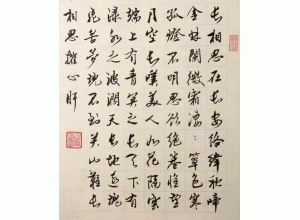 長相思在長安絡緯秋啼
金井闌微霜淒〻簟色寒
孤燈不明思欲絕卷帷望
月空長嘆美人如花隔雲
端上有青冥之長天下有
淥水之波瀾天長地遠魂
飛苦夢魂不到關山難長
相思摧心肝